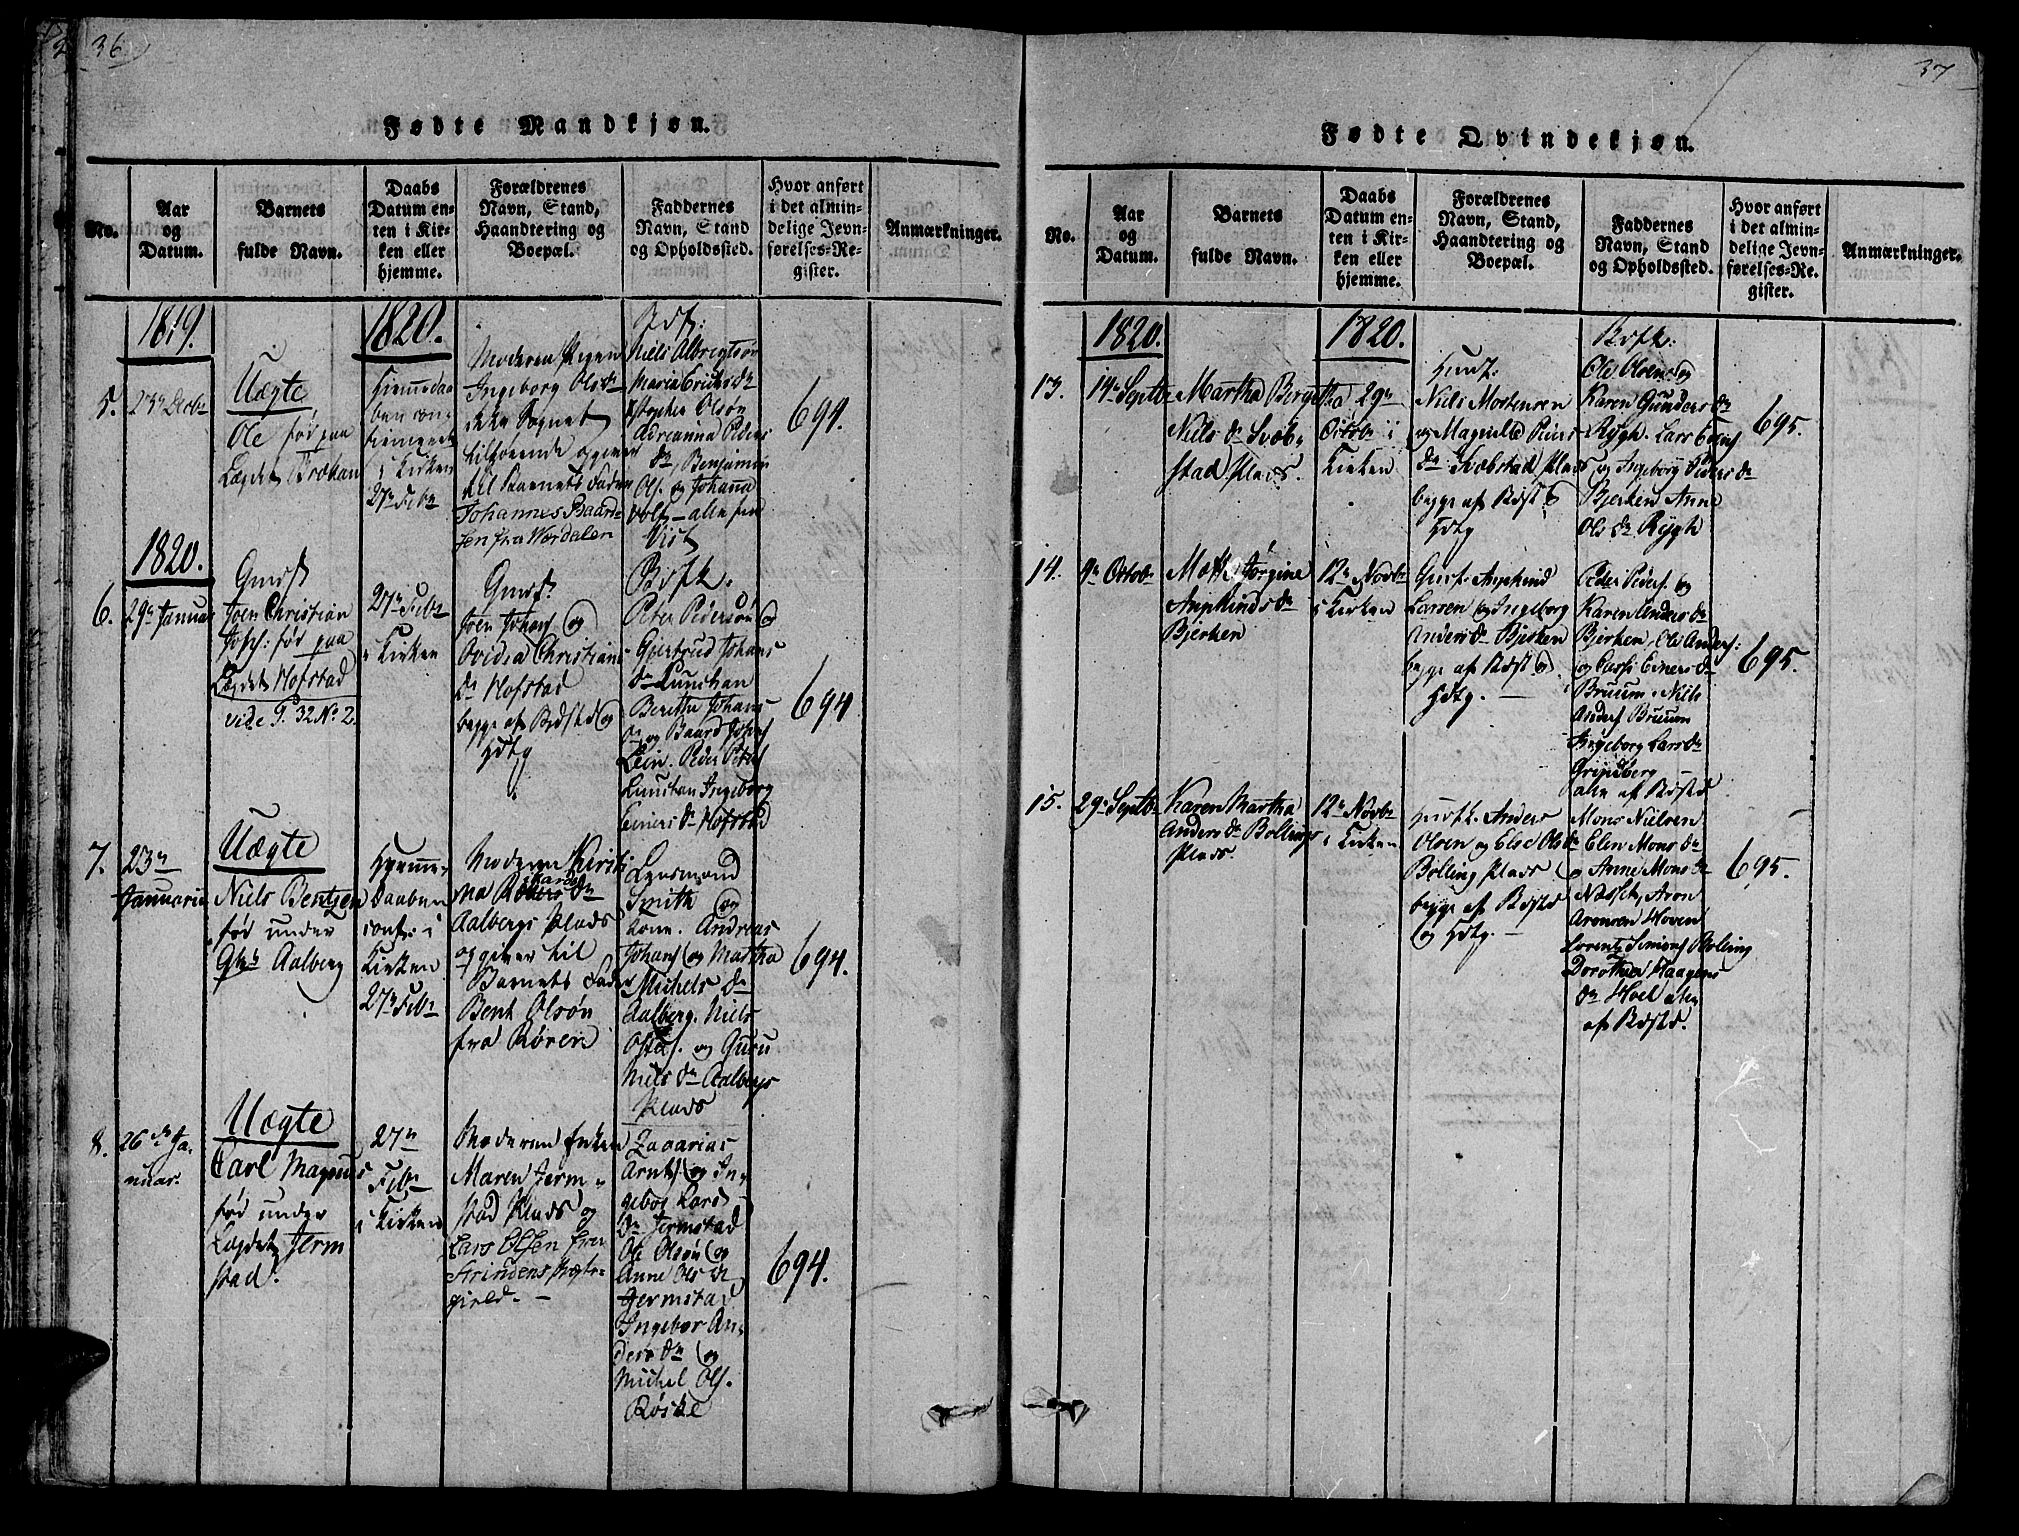 36
Fødte Mandkjøn.
No.
Aar
og
Datum.
Barnets
fulde Navn.
Daabs
Datum en-
ten i Kir-
ken eller
hjemme.
Forældrenes
Navn, Stand,
Haandtering og
Boepæl.
Faddernes
Navn, Stand
og Opholdssted.
Hvor anført
i det almin-
delige Jevn-
førelses-Re-
gister.
Anmærkninger.
1819.
5.
23de Decbr
Uægte
Ole fød paa
Lægdet Trøhan
1820.
Hiemmedaa-
ben con-
firmeret
i Kirken
27de Febr
Moderen Pigen
Ingeborg Olsdr
dette Sognet
tilhørende opgiver
til Barnets Fader
Johannes Baard-
sen fra Værdalen
Niels Albregtsøn
Maria Eriksdr
Christopher Olsøn
Adrianna Peders
dr, Benjamin
Ols. og Johana
Volf - alle fra
Vist
694.
1820.
6.
29de Januar
Joen Christian
Johs: fød paa
Lægdet Hofstad
vide P. 32 No 2.
27de Febr
i Kirken
Joen Johans og
Ovidia Christians
dr Hofstad
begge af Bdstd og
Hdtg
Peter Pedersøn og
Gjertrud Johans
dr Lunchan
Berethe Johans
dr og Baard Johans
Lein. Peder Peters
Lunchan Ingeborg
Einersdr Hofstad
694
7.
23de
Januarii
Uægte
Niels Bentzen
fød under
Aalberg
Hjemme-
Daaben
conf: i
Kirken
27de Febr
Moderen Kirsti-
na Rikardsdr
Aalbergs Plads
opgiver til
Barnets Fader
Bent Olsøn
fra Røren
Lensmand
Smith og
Kone. Andreas
Johans og Martha
Michelsdr
Aalberg. Niels
og Guru
Nielsdr Aalbergs
Plads
694.
8.
26de Ja-
nuar.
Uægte
Carl Magnus
fød under
Lægdet Jerm
stad.
27de
Febr
i Kirken
Moderen Enken
Maren Jerm-
stad Plads og
Lars Olsen fra
Strindens Præste-
gield. -
Zacarias
Arnts og In-
gebor Lars
dr Jermstad
Ole Olsøn og
Anne Olsdr
Jermstad
Ingebor An-
dersdr og
Michel Ols.
Røske
694.
37
Fødte Qvindekjøn.
No.
Aar
og
Datum.
Barnets
fulde Navn.
Daabs
Datum en-
ten i Kir-
ken eller
hjemme.
Forældrenes
Navn, Stand,
Haandtering og
Boepæl.
Faddernes
Navn, Stand
og Opholdssted.
Hvor anført
i det almin-
delige Jevn-
førelses-Re-
gister.
Anmærkninger.
1820.
13.
14de Septbr
Martha Bergetha
Nielsdr Sveb-
stad Plads.
1820.
29de
Octobr i
Kirken
Niels Mortensen
og Magnild Peders
dr Svebstad Plads
begge af Bdst og
Hdtg
Ole Olsen og
Karen Gundersdr
Rygh. Lars
og Ingeborg Pedersdr
Bjerken Anne
Olsdr Rygh
695.
14.
9de Octobr
Mette Jørgine
Bjerken
12de Novbr
i Kirken
Larsen og Ingeborg
Andersdr Bjerken
begge af Bdst og
Hdtg. -
Peder Peders. og
Karen Andersdr
Bjerken, Ole Anders:
og Einersdr
Bruum. Niels
Anders Bruum
Ingeborg Larsdr
Grindberg
alle af Bdstd
695.
15.
29de Septbr
Karen Martha
Andersdr Bollings
Plads.
12de Novbr
i Kirken
Anders
Olsen og Else Olsdr
Bolling Plads
begge af Bdstd
og Hdtg. -
Mons Nielsen
Elen Monsdr
Anne Monsdr
Aron
Aronsen Hoven
Lorents Simons Bolling
Dorothea Haagens
dr Hoel alle
af Bdstd.
695.